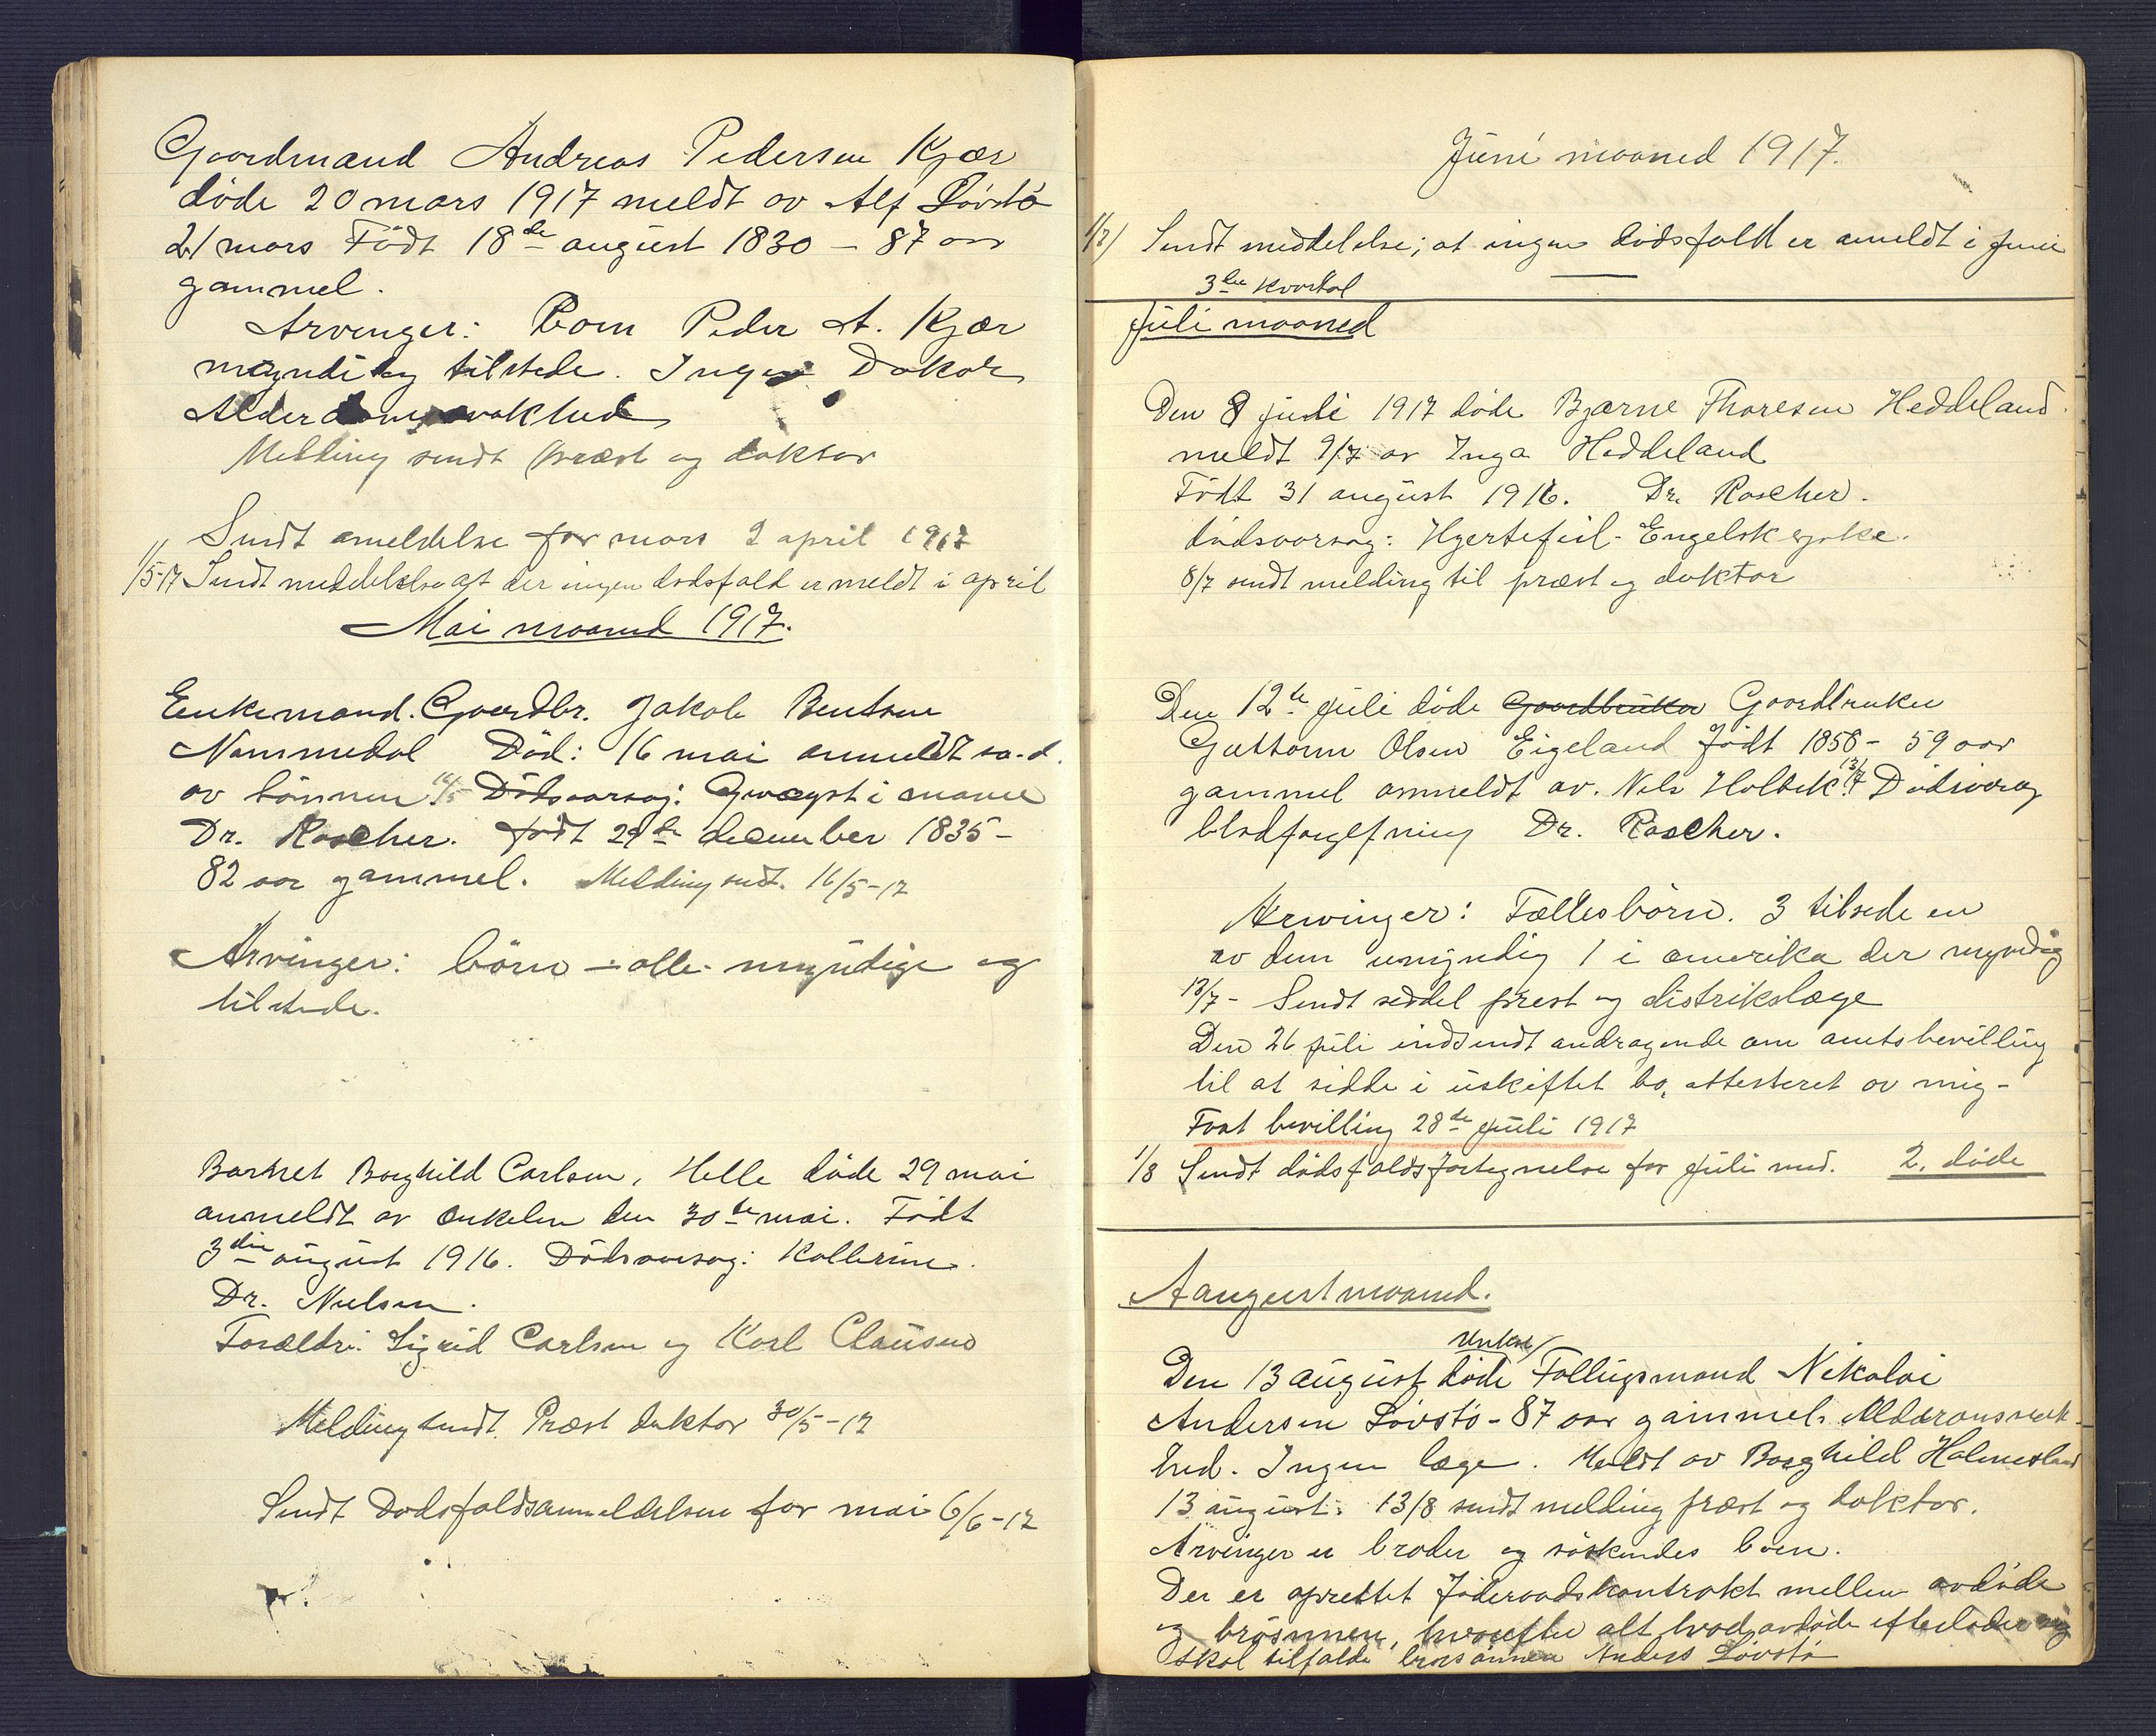 Gaardmand Andreas Pedersen Kjær
döde 20 mars 1917 meldt av Alf Lövstö
21 mars Födt 18de august 1830 – 87 aar
gammel.
Arvinger: Barn Peder A. Kjær
myndig tilstede. Ingen Doktor
Alderdomssvakhed
Melding sendt præst og doktor
Sendt anmeldelse for mars 2 april 1917
1/5-17 Sendt meddelelse at der ingen dødsfald er meldt i april
Mai maaned 1917.
Enkemand. Gaardbr. Jakob Bentsen
Nommedal Död: 16 mai anmeldt sa.d.
av sönnen 16/5 Dödsaarsag: Gwægst i mave
Dr. Roscher. födt 29de december 1835 –
82 aar gammel. Melding sendt. 16/5-17
Arvinger: börn – alle myndige og
tilstede.
Barnet Borghild Carlsen, Helle döde 29 mai
anmeldt av onkelen den 30te mai. Födt
3die august 1916. Dödsaarsag: Kollerine.
Dr. Nielsen.
Forældre: Sigrid Carlsen og Karl Clausen
Melding sendt Præst doktor 30/5-17
Sendt Dødsfaldsanmeldelsen for mai 6/6-17
Juni maaned 1917.
1/7 Sendt meddelelse; at ingen dödsfald er anmeldt i Juni
3die kvartal
Juli maaned
Den 8 juli 1917 döde Bjarne Thoresen Heddeland.
meldt 9/7 av Inga Heddeland
Födt 31 august 1916. Dr. Roscher.
dödsaarsag: Hjertefeil - Engelsk syke.
8/7 sendt melding til præst og doktor
Den 12te juli döde Gaardbruker Gaardbruker
Guttorm Olsen Eigeland födt 1858 – 59 aar
gammel anmeldt av. Nils Holbek 13/7 Dödsaarsag
blodforgiftning Dr. Roscher.
Arvinger: Fællesbörn. 3 tilsede en
av dem umyndig 1 i amerika der myndig
13/7 – Sendt seddel prest og distrikslæge
Den 26 juli indsendt andragende om amtsbevilling
til at sidde i uskiftet bo, attesteret av mig –
Faat bevilling 28de juli 1917
1/8 Sendt dödsfaldsfortegnelse for juli md. 2. döde
Aaugust maaned.
Unkar/
Den 13 august döde Fattigsmand Nikolai
Andersen Lövstö – 87 aar gammel. Alderdomssvak-
hed. Ingen læge. Meldt av Borghild Holmesland
13 august. 13/8 sendt melding præst og doktor.
Arvinger er broder og söskendes barn.
Der er oprettet föderaadskontrakt mellem avdöde
og brösönnen, hvorefter alt hvad avdöde efterlader sig
skal tilfalde brorsönnen Anders Lövstö